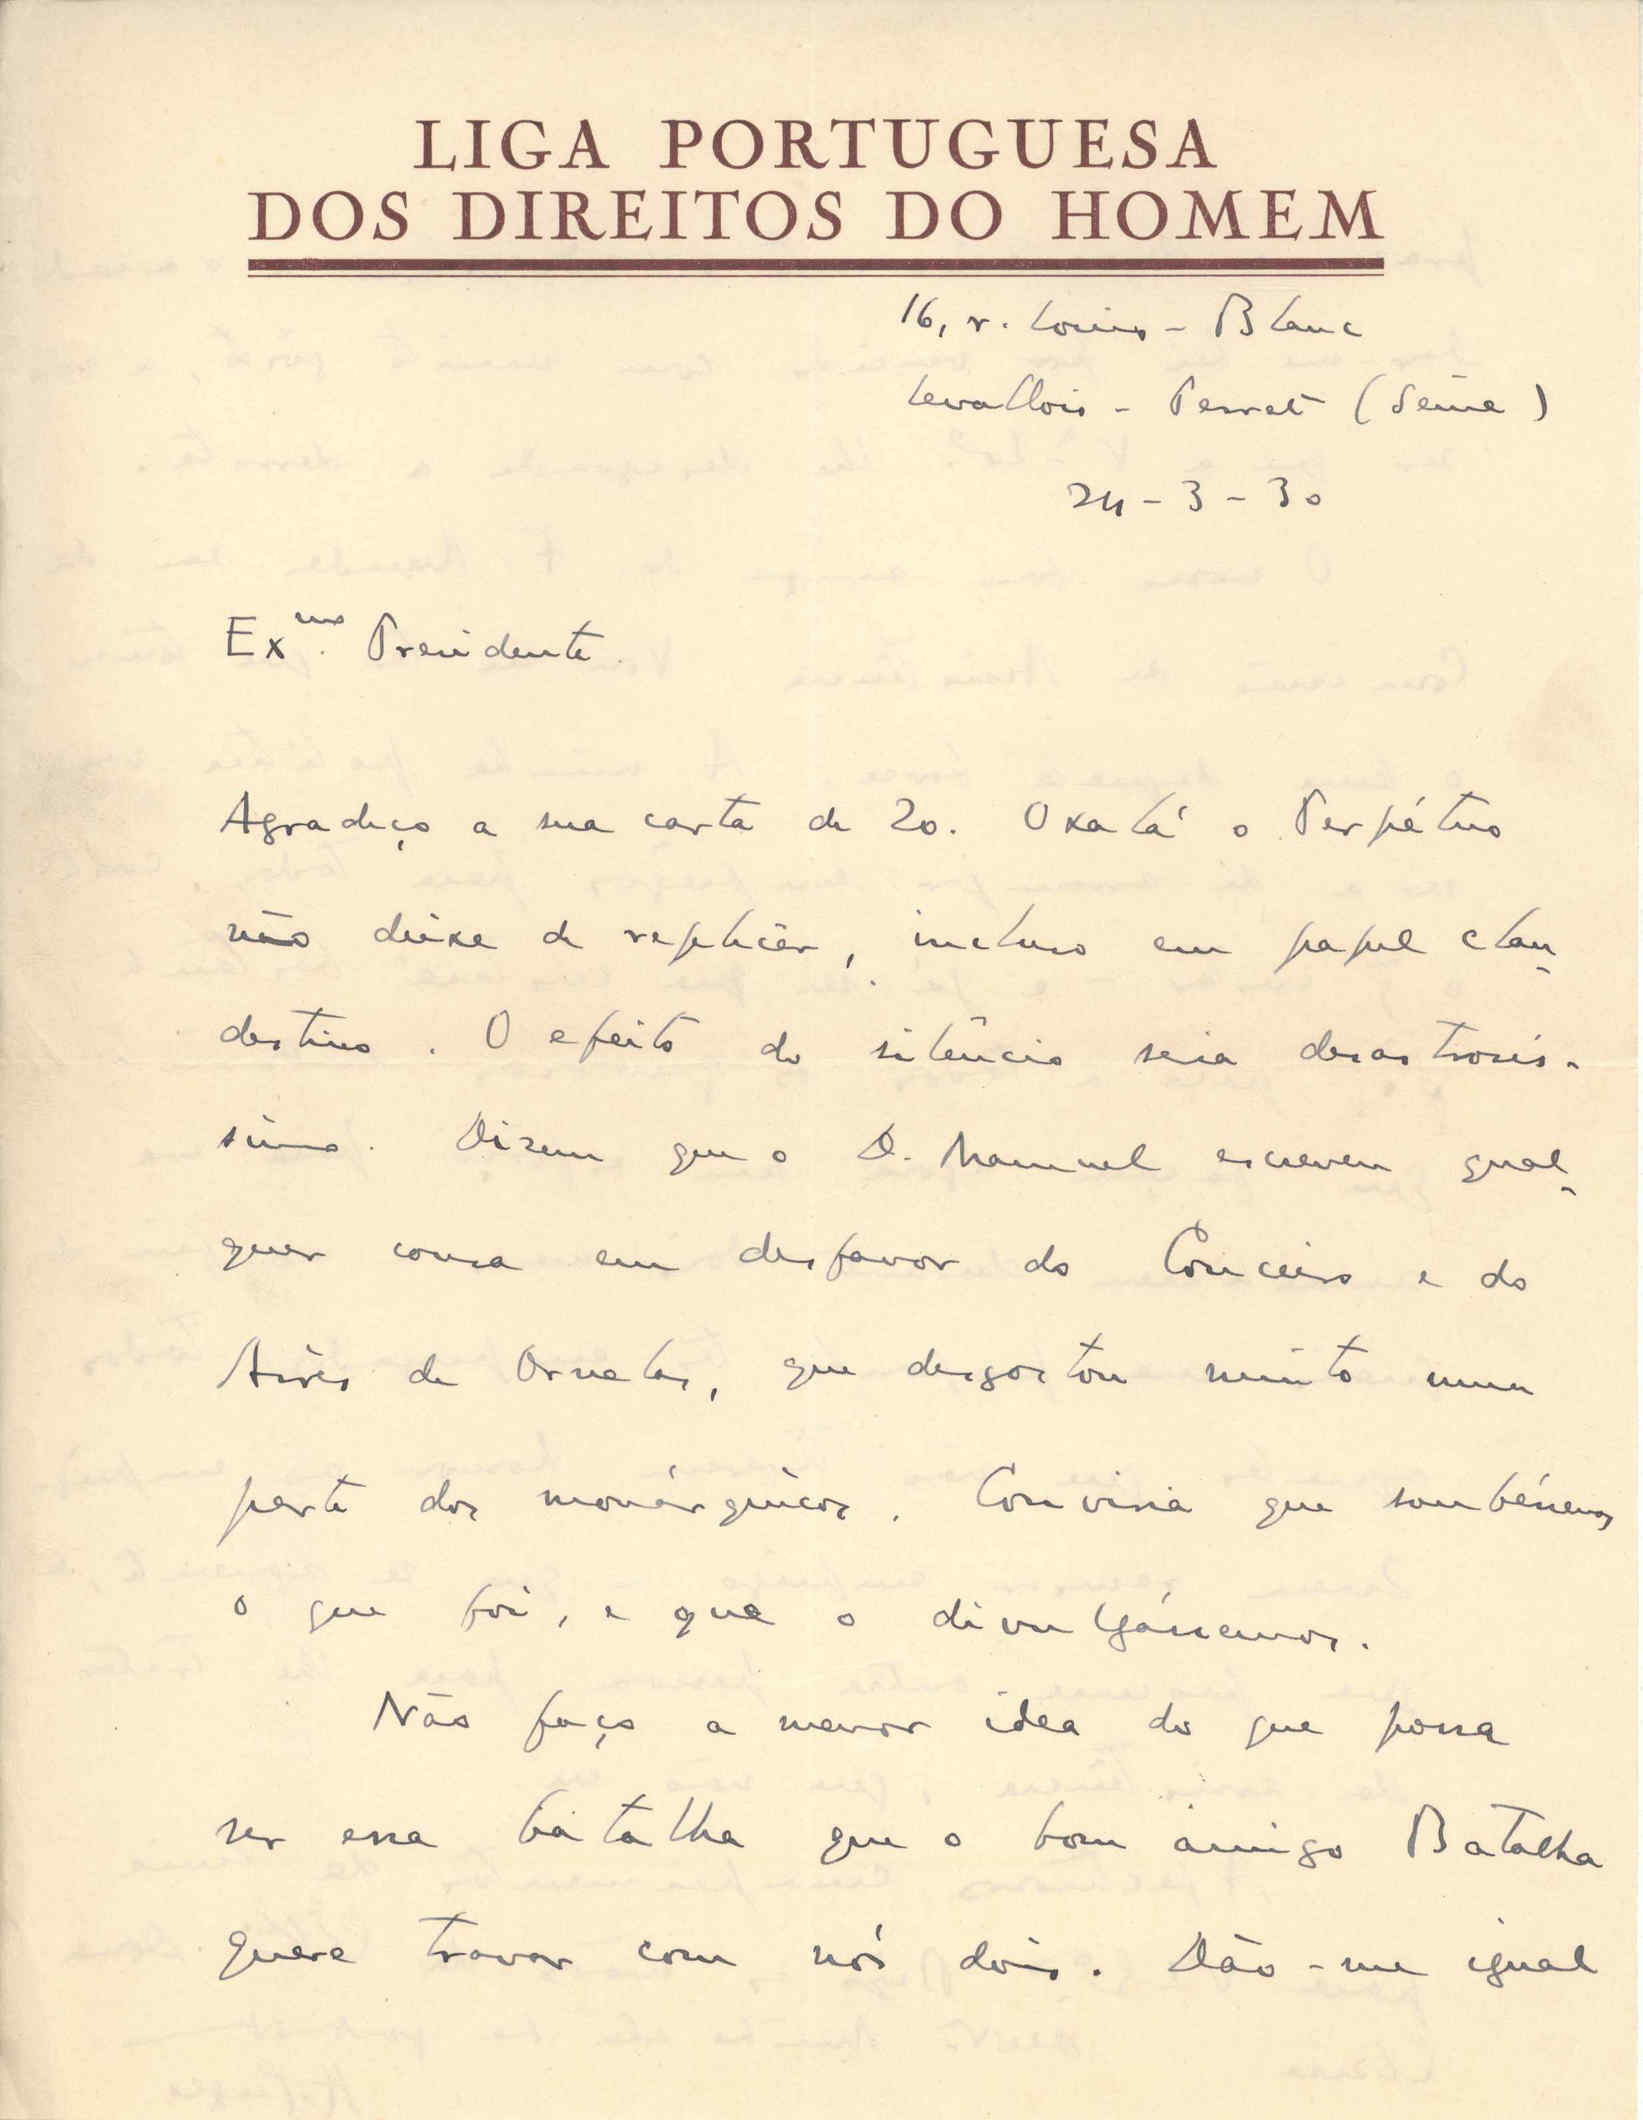 LIGA PORTUGUESA
DOS DIREITOS DO HOMEM
16, r. Louis-Blanc
Levallois-Perret (Seine)
24-3-30
Ex.mo Presidente
Agradeço a sua carta de 20. Oxalá o Perpétuo
não deixe de replicar, incluso em papel clan-
destino. O efeito do silêncio seria desastrosís-
simo. Dizem que o D. Manuel escreveu qual-
quer cousa em desfavor do Couceiro e do
Aires de Ornelas, que desgostou muito uma
parte dos monárquicos. Conviria que soubéssemos
o que foi, e que o divulgássemos.
Não faço a menor idea do que possa
ser essa batalha que o bom amigo Batalha
quere travar com nós dois. Dão-me igual